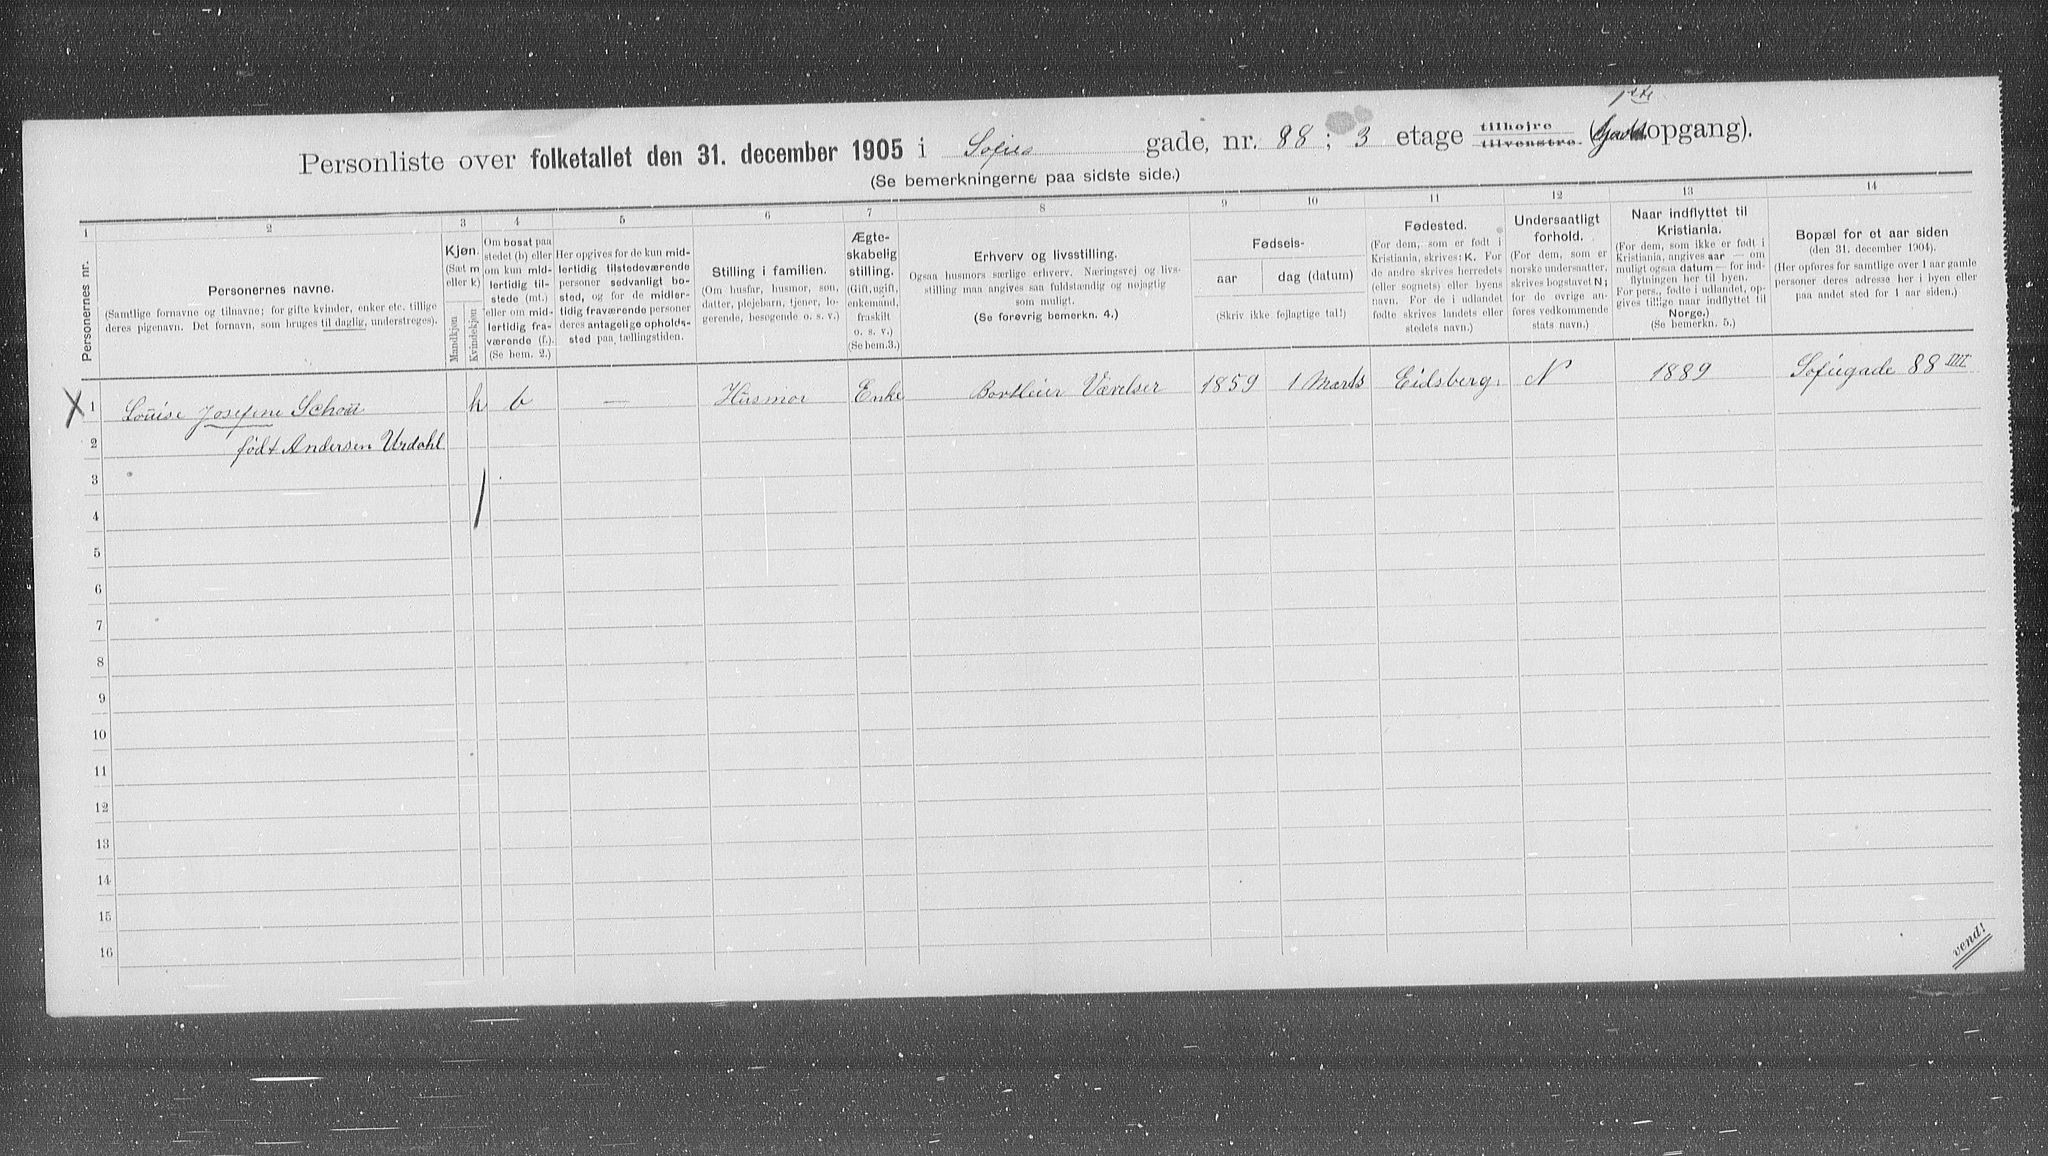 1ste
Personliste over folketallet den 31. december 1905 i Sofies gade, nr. 88; 3 etage tilhøjre tilvenstre. (opgang).
(Se bemerkningerne paa sidste side.)
1 2 3 4 5 6 7 8 9 10 11 12 13 14
Personernes nr.
Personernes navne.
(Samtlige fornavne og tilnavne; for gifte kvinder, enker etc. tillige
deres pigenavn. Det fornavn, som bruges til daglig, understreges).
Kjøn.
(Sæt m
eller k)
Mandkjøn
Kvindekjøn
Om bosat paa
stedet (b) eller
om kun mid-
lertidig til-
stede (mt.)
eller om mid-
lertidig fra-
værende (f.).
(Se bem. 2.)
Her opgives for de kun mid-
lertidig tilstedeværende
personer sedvanligt bo-
sted, og for de midler-
tidig fraværende personer
deres antagelige opholds-
sted paa tællingstiden.
Stilling i familien.
(Om husfar, husmor, søn,
datter, plejebarn, tjener, lo-
gerende, besøgende o. s. v.)
Ægte-
skabelig
stilling.
(Gift, ugift,
enkemand,
fraskilt
o. s. v.)
(Se bem.3.)
Erhverv og livsstilling.
Ogsaa husmors særlige erhverv. Næringsvej og livs-
stilling maa angives saa fuldstændig og nøjagtig
som muligt.
(Se forøvrig bemerkn. 4.)
Fødsels-
aar dag (datum)
(Skriv ikke fejlagtige tal!)
Fødested.
(For dem, som er født i
Kristiania, skrives: K. For
de andre skrives herredets
(eller sognets) eller byens
navn. For de i udlandet
fødte skrives landets eller
stedets navn.)
Undersaatligt
forhold.
(For dem, som er
norske undersaatter,
skrives bogstavet N;
for de øvrige an-
føres vedkommende
stats navn.)
Naar indflyttet til
Kristiania.
(For dem, som ikke er født i
Kristiania, angives aar — om
muligt ogsaa datum — for ind-
flytningen her til byen.
For pers., fødte i udlandet, op-
gives tillige naar indflyttet til
Norge.)
(Se bemerkn. 5.)
Bopæl for et aar siden
(den 31. december 1904).
(Her opføres for samtlige over 1 aar gamle
personer deres adresse her i byen eller
paa andet sted for 1 aar siden.)
X 1 Louise Josefine Schou k b — Husmor Enke Bortleier Værelser 1859 1 Marts Eidsberg. N 1889 Sofiegade 88 IIII
2 født Andersen Urdahl
3
4
5
6
7
8
9
10
11
12
13
14
15
16
vend!